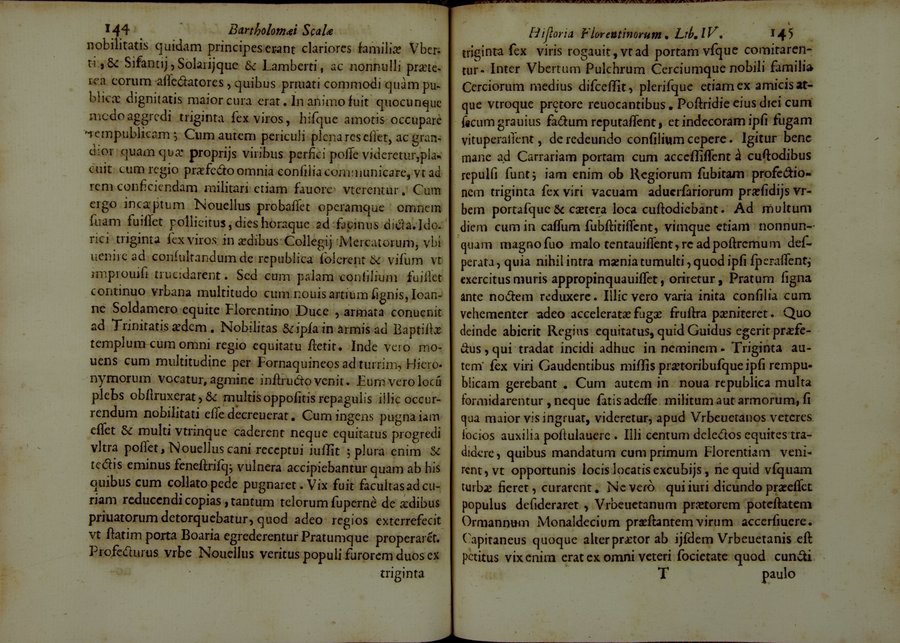 144 Bartholomæi Scalæ
nobilitatis quidam principes erant clariores familiæ Vber-
ti, & Sifantij, Solarijque & Lamberti, ac nonnulli præte-
rea eorum assectatores, quibus priuati commodi quàm pu-
blicæ dignitatis maior cura erat. In animo fuit quocunque
modo aggredi triginta sex viros, hisque amotis occuparè
rempublicam; Cum autem periculi plena res esset, ac gran-
dior quam quæ proprijs viribus perfici posse videretur, pla-
cuit cum regio præfecto omnia consilia communicare, vt ad
rem conficiendam militari etiam fauore vterentur. Cum
ergo incæptum Nouellus probasset operamque omnem
suam fuisset pollicitus, dies horaque ad facinus dicta. Ido-
rici triginta sex viros in ædibus Collegij Mercatorum, vbi
uenire ad consultandum de republica solerent & visum vt
improuisi trucidarent. Sed cum palam consilium fuisset
continuo vrbana multitudo cum nouis artium signis, Ioan-
ne Soldamero equite Florentino Duce, armata conuenit
ad Trinitatis ædem. Nobilitas & ipsa in armis ad Baptistæ
templum cum omni regio equitatu stetit. Inde vero mo-
uens cum multitudine per Fornaquineos ad turrim, Hiero-
nymorum vocatur, agmine instructo venit. Eum vero locū
plebs obstruxerat, & multis oppositis repagulis illic occur-
rendum nobilitati esse decreuerat. Cum ingens pugna iam
esset & multi vtrinque caderent neque equitatus progredi
vltra posset, Nouellus cani receptui iussit; plura enim &
tectis eminus fenestrisq; vulnera accipiebantur quam ab his
quibus cum collato pede pugnaret. Vix fuit facultas ad cu-
riam reducendi copias, tantum telorum supernè de ædibus
priuatorum detorquebatur, quod adeo regios exterrefecit
vt statim porta Boaria egrederentur Pratumque properarēt.
Profecturus vrbe Nouellus veritus populi furorem duos ex
triginta
Historia Florentinorum. Lib. IV. 145
triginta sex viris rogauit, vt ad portam vsque comitaren-
tur. Inter Vbertum Pulchrum Cerciumque nobili familia
Cerciorum medius discessit, plerisque etiam ex amicis at-
que vtroque prętore reuocantibus. Postridie eius diei cum
secum grauius factum reputassent, et indecoram ipsi fugam
vituperassent, de redeundo consilium cepere. Igitur bene
mane ad Carrariam portam cum accessissent à custodibus
repulsi sunt; iam enim ob Regiorum subitam profectio-
nem triginta sex viri vacuam aduersariorum præsidijs vr-
bem portasque & cætera loca custodiebant. Ad multum
diem cum in cassum substitissent, vimque etiam nonnun-
quam magno suo malo tentauissent, re ad postremum des-
perata, quia nihil intra mænia tumulti, quod ipsi sperassent;
exercitus muris appropinquauisset, oriretur, Pratum signa
ante noctem reduxere. Illic vero varia inita consilia cum
vehementer adeo acceleratæ fugæ frustra pæniteret. Quo
deinde abierit Regius equitatus, quid Guidus egerit præfe-
ctus, qui tradat incidi adhuc in neminem. Triginta au-
tem sex viri Gaudentibus missis prætoribusque ipsi rempu-
blicam gerebant. Cum autem in noua republica multa
formidarentur, neque satis adesse militum aut armorum, si
qua maior vis ingruat, videretur, apud Vrbeuetanos veteres
socios auxilia postulauere. Illi centum delectos equites tra-
didere, quibus mandatum cum primum Florentiam veni-
rent, vt opportunis locis locatis excubijs, ne quid vsquam
turbæ fieret, curarent. Ne verò qui iuri dicundo præesset
populus desideraret, Vrbeuetanum prætorem potestatem
Ormannum Monaldecium præstantem virum accersiuere.
Capitaneus quoque alter prætor ab ijsdem Vrbeuetanis est
petitus vix enim erat ex omni veteri societate quod cuncti
T paulo